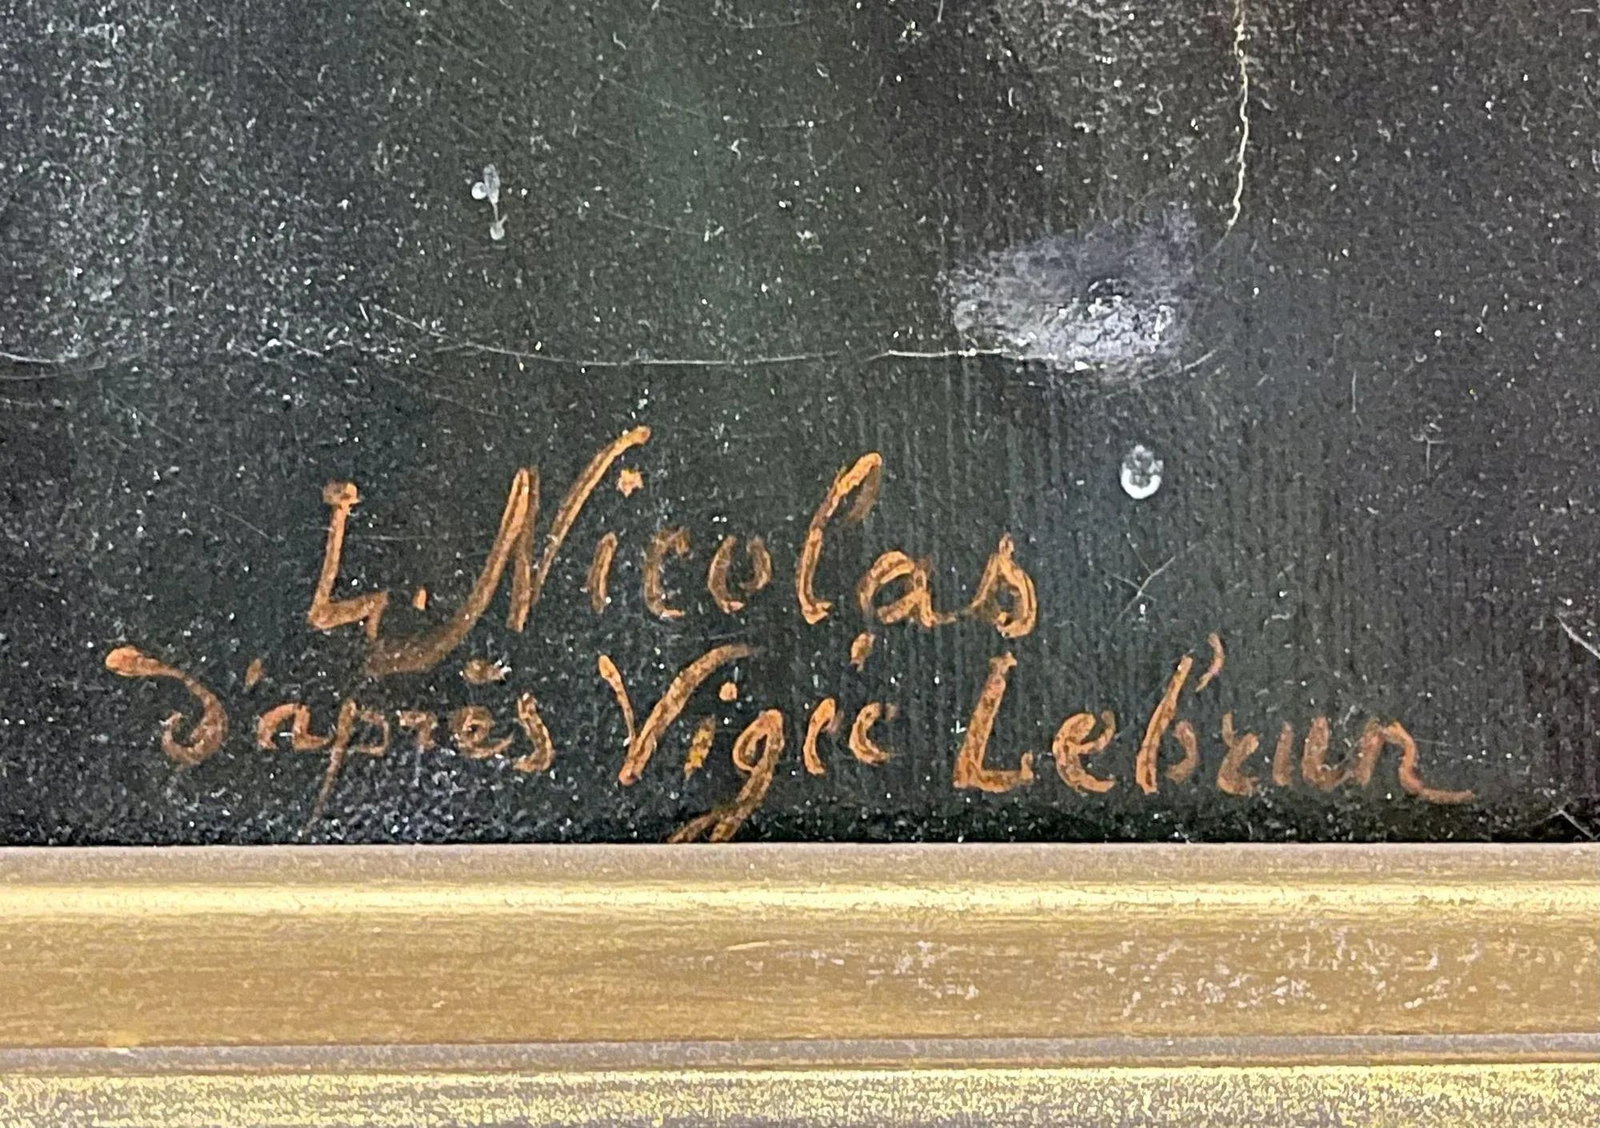 L. Nicolas
d'après Vigée Lebrun